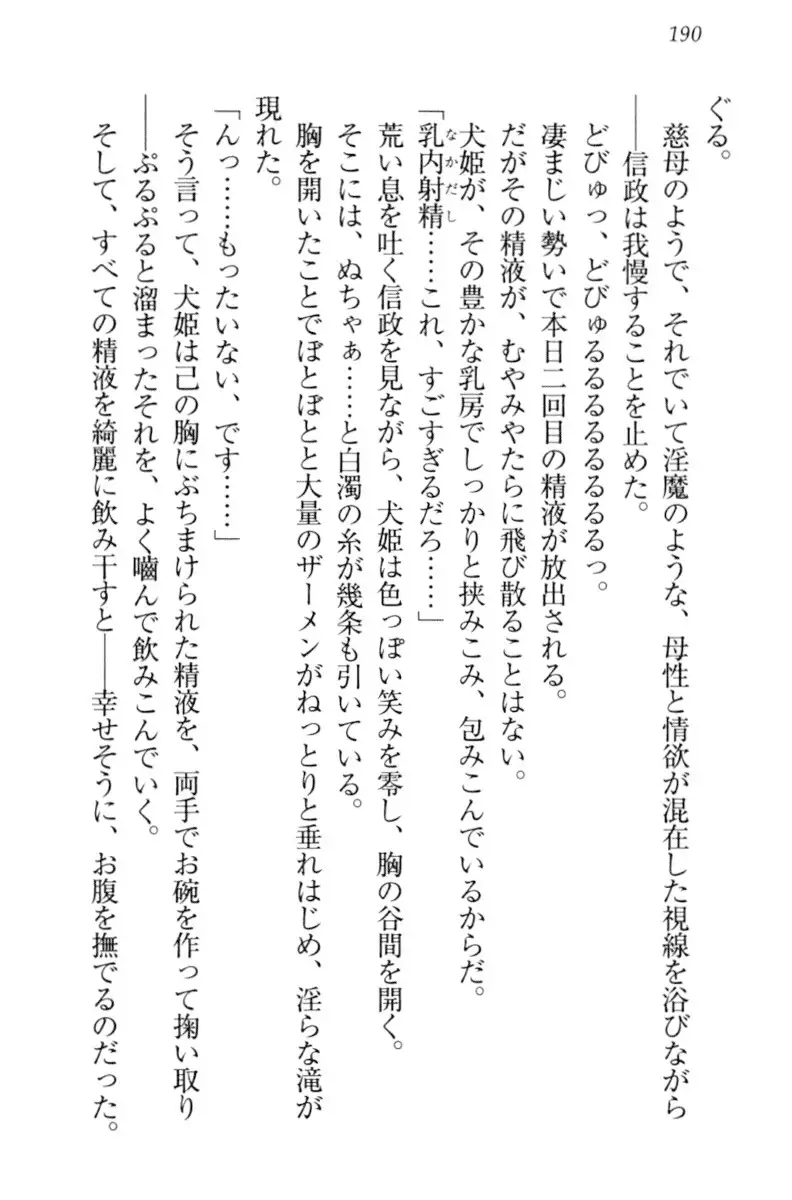 190
ぐる。
慈母のようで、それでいて淫魔のような、母性と情欲が混在した視線を浴びながら
――信政は我慢することを止めた。
どびゅっ、どびゅるるるるるるるっ。
凄まじい勢いで本日二回目の精液が放出される。
だがその精液が、むやみやたらに飛び散ることはない。
犬姫が、その豊かな乳房でしっかりと挟みこみ、包みこんでいるからだ。
「乳内射精……これ、すごすぎるだろ……」
なかだし
荒い息を吐く信政を見ながら、犬姫は色っぽい笑みを零し、胸の谷間を開く。
そこには、ぬちゃぁ……と白濁の糸が幾条も引いている。
胸を開いたことでぼとぼとと大量のザーメンがねっとりと垂れはじめ、淫らな滝が
現れた。
「んっ……もったいない、です……」
そう言って、犬姫は己の胸にぶちまけられた精液を、両手でお碗を作って掬い取り
――ぷるぷると溜まったそれを、よく嚙んで飲みこんでいく。
そして、すべての精液を綺麗に飲み干すと――幸せそうに、お腹を撫でるのだった。